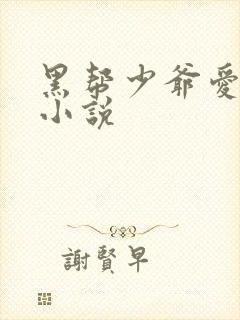 黑帮少爷爱
小說
謝賢早